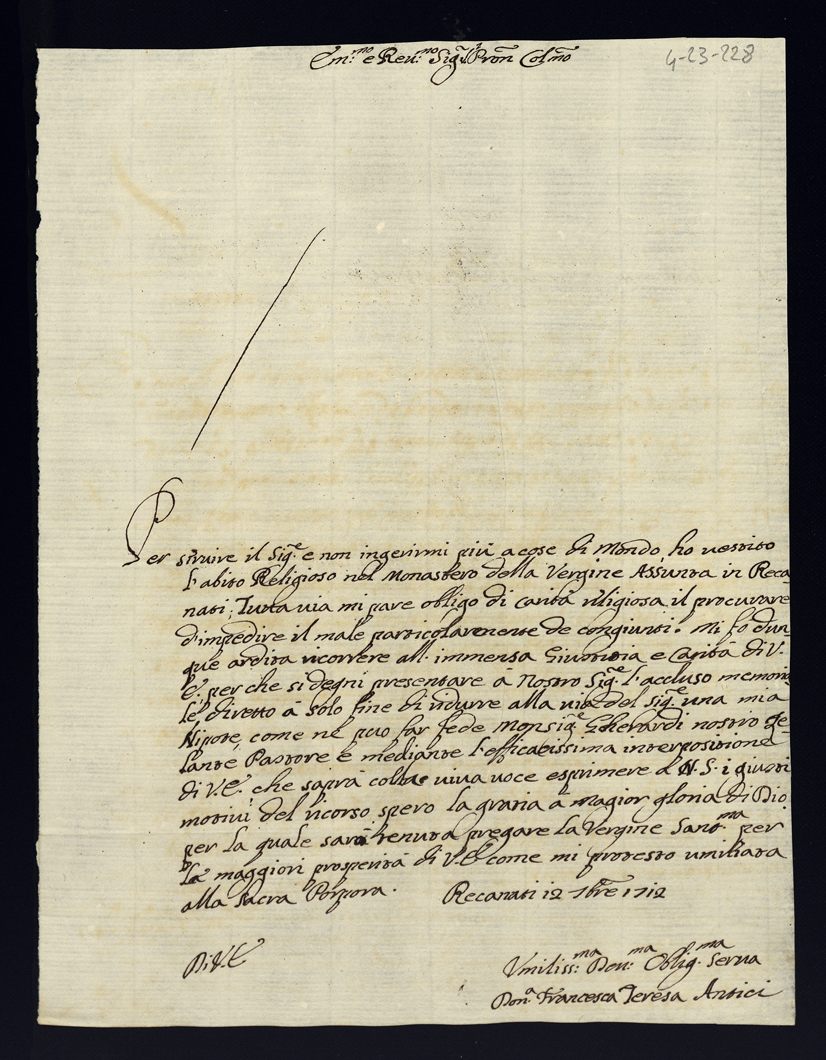 Em:mo e Reu:mo Sig.r Pron Colmo
4-23-228
Per seruire il Sig.e e non ingerirmi più a cose di Mondo, ho uestito
l'abito Religioso nel Monastero della Vergine Assunta in Reca
nati; Tutta uia mi pare obligo di carità religiosa il procurare
d'impedire il male particolarmente de congiunti. Mi fo dun
que ardita ricorrere all'immensa Giustitia e Carità di V.
E. per che si degni presentare a Nostro Sig.e l'accluso memoria
le, diretto à solo fine di ridurre alla uia del Sig.e una mia
Nipote, come nè può far fede Monsig.e Gherardi nostro Ze
lante Pastore e mediante l'efficacissima interpositione
di V.E. che saprà colla uiua uoce esprimere à N.S. i giusti
motiui del ricorso spero la gratia à magior gloria di Dio
per la quale sarò tenuta pregare la Vergine Sant.ma per
le maggiori prosperità di V.E. come mi protesto umiliata
alla Sacra Porpora. Recanati 12 7bre 1712
Di V.E.
Vmiliss:ma Deu:ma Oblig.ma Serua
Don.a Francesca Teresa Antici